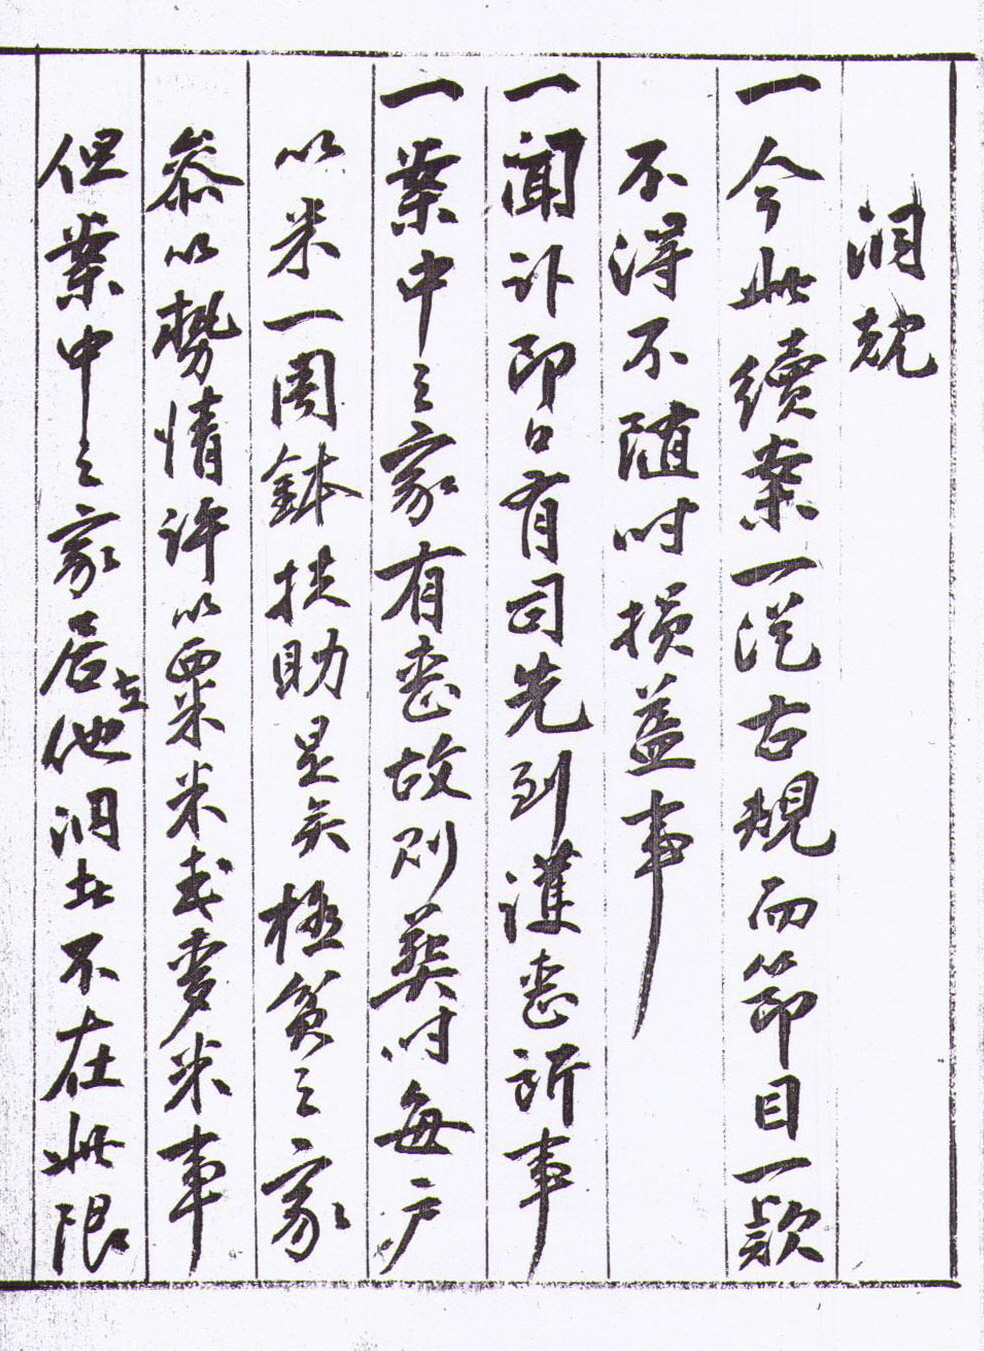 洞規
一今此續案一從古規而節目一款
不得不隨時損益事
一聞訃卽日有司先到護喪所事
一案中之家有喪故則葬時每戶
以米一周鉢扶助是矣極貧之家
叅以勢情許以粟米或麥米事
但案中之家居在他洞者不在此限